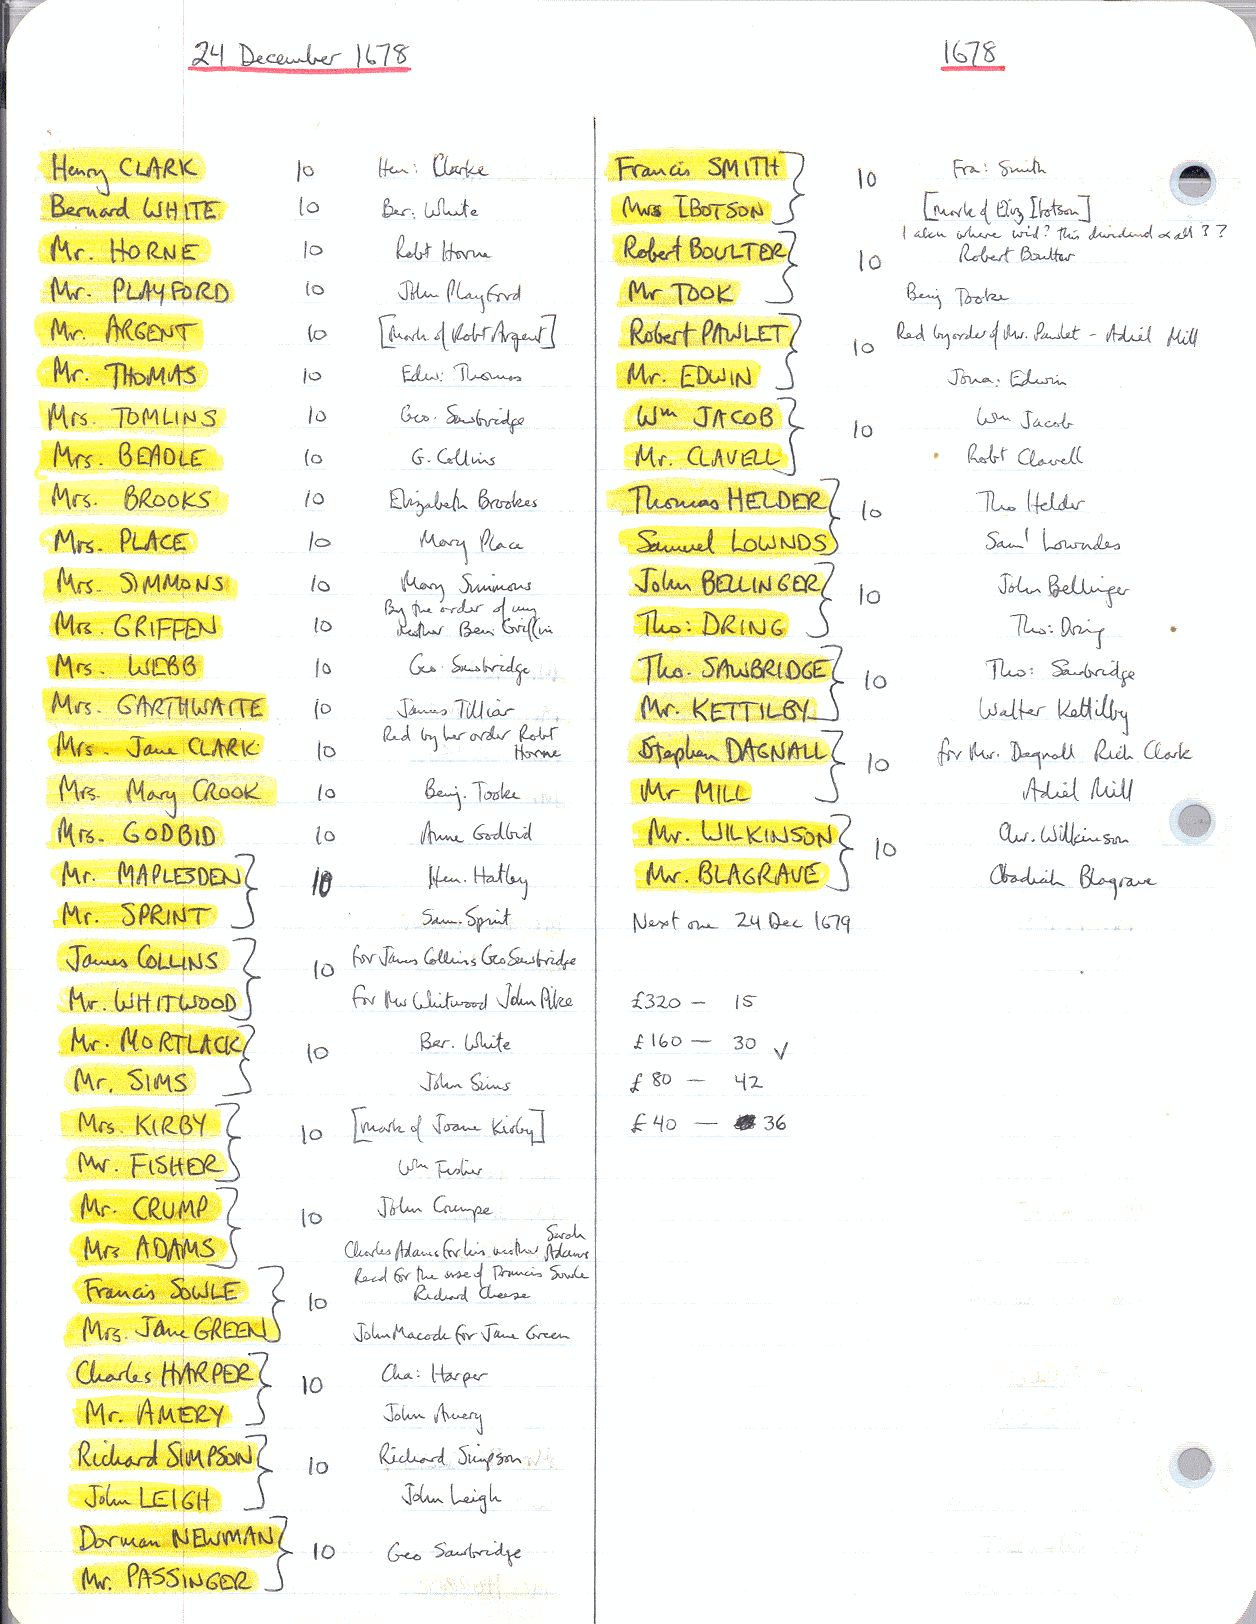 24 December 1678
Henry CLARK 10 Hen: Clarke
Bernard WHITE 10 Ber. White
Mr. HORNE 10 Robt Horne
Mr. PLAYFORD 10 John Playford
Mr. ARGENT 10 [mark of Robt Argent]
Mr. THOMAS 10 Edw: Thomas
Mrs. TOMLINS 10 Geo. Sawbridge
Mrs. BEADLE 10 G. Collins
Mrs. BROOKS 10 Elizabeth Brookes
Mrs. PLACE 10 Mary Place
Mrs. SIMMONS 10 Mary Simmons
Mrs. GRIFFEN 10 By the order of my
mother Benj. Griffin
Mrs. WEBB 10 Geo. Sawbridge
Mrs. GARTHWAITE 10 James Tilliar
Mrs. Jane CLARK 10 Recd by her order Robt
Horne
Mrs. Mary CROOK 10 Benj. Tooke
Mrs. GODBID 10 Anne Godbid
Mr. MAPLESDEN 10 Hen. Hatley
Mr. SPRINT Sam. Sprint
James COLLINS 10 for James Collins Geo Sawbridge
Mr. WHITWOOD for Mr Whitwood John Pike
Mr. MORTLACK 10 Ber. White
Mr. SIMS John Sims
Mrs. KIRBY 10 [mark of Joane Kirby]
Mr. FISHER Wm Fisher
Mr. CRUMP 10 John Crumpe
Mrs ADAMS Charles Adams for his mother Sarah Adams
Francis SOWLE 10 Recd for the use of Francis Sowle
Richard Cheese
Mrs. Jane GREEN John Macock for Jane Green
Charles HARPER 10 Cha: Harper
Mr. AMERY John Amery
Richard SIMPSON 10 Richard Simpson
John LEIGH John Leigh
Dorman NEWMAN 10 Geo Sawbridge
Mr. PASSINGER
1678
Francis SMITH 10 Fra: Smith
Mrs IBOTSON [mark of Eliz Ibotson]
this dividend
Robert BOULTER 10 Robert Boulter
Mr TOOK Benj Tooke
Robert PAWLET 10 Recd by order of Mr. Pawlet - Adiel Mill
Mr. EDWIN Jona: Edwin
Wm JACOB 10 Wm Jacob
Mr. CLAVELL Robt Clavell
Thomas HELDER 10 Tho Helder
Samuel LOWNDS Saml Lowndes
John BELLINGER 10 John Bellinger
Tho: DRING Tho: Dring
Tho. SAWBRIDGE 10 Tho: Sawbridge
Mr. KETTILBY Walter Kettilby
Stephen DAGNALL 10 for Mr. Dagnall Rich Clark
Mr MILL Adiel Mill
Mr. WILKINSON 10 Chr. Wilkinson
Mr. BLAGRAVE Obadiah Blagrave
Next one 24 Dec 1679
£320 - 15
£160 - 30 ✓
£80 - 42
£40 - 36